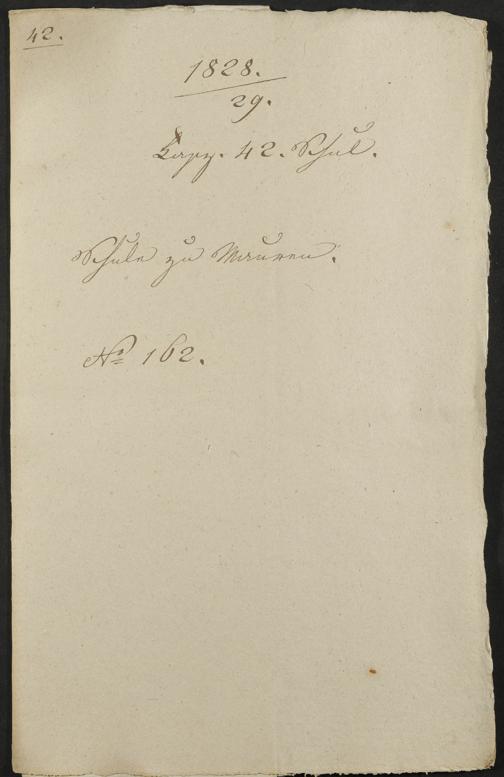 42.
1828.
29.
Capp. 42. Schul.
Schule zu Mauren.
No 162.